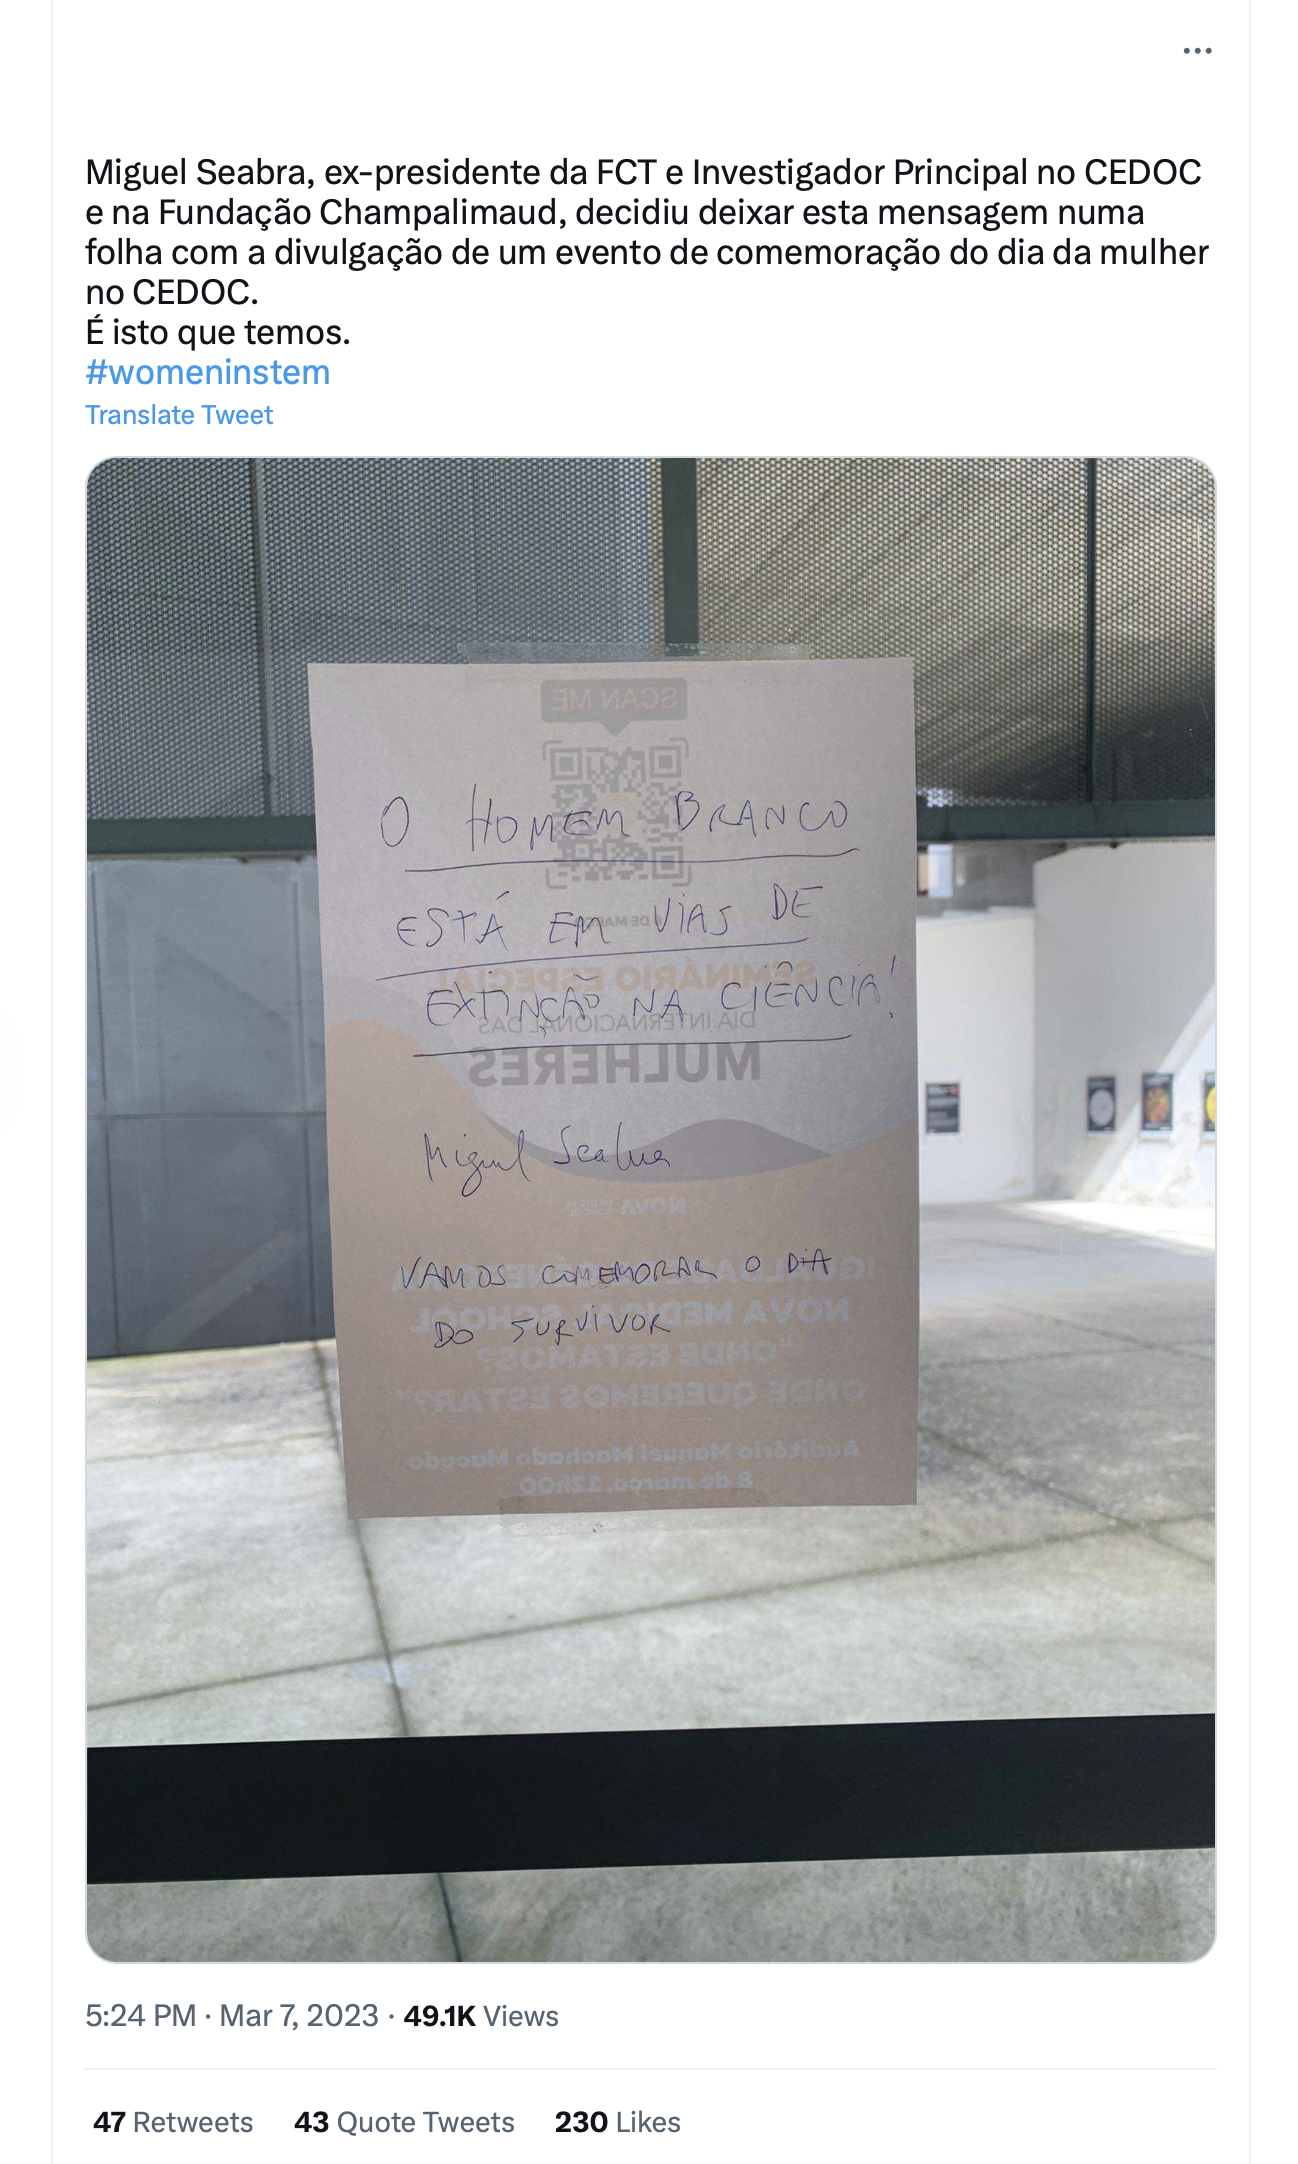 Miguel Seabra, ex-presidente da FCT e Investigador Principal no CEDOC
e na Fundação Champalimaud, decidiu deixar esta mensagem numa
folha com a divulgação de um evento de comemoração do dia da mulher
no CEDOC.
É isto que temos.
#womeninstem
Translate Tweet
SCAN ME
O HOMEM BRANCO
ESTÁ EM VIAS DE
SEMINÁRIO ESPECIAL
EXTINÇÃO NA CIÊNCIA!
DIA INTERNACIONAL DAS
MULHERES
Miguel Seabra
NOVA
VAMOS COMEMORAR O DIA
NOVA MEDICAL SCHOOL
DO SURVIVOR
"ONDE ESTAMOS?
ONDE QUEREMOS ESTAR?"
Auditório Manuel Machado Macedo
8 de março, 12h00
5:24 PM · Mar 7, 2023 · 49.1K Views
47 Retweets 43 Quote Tweets 230 Likes